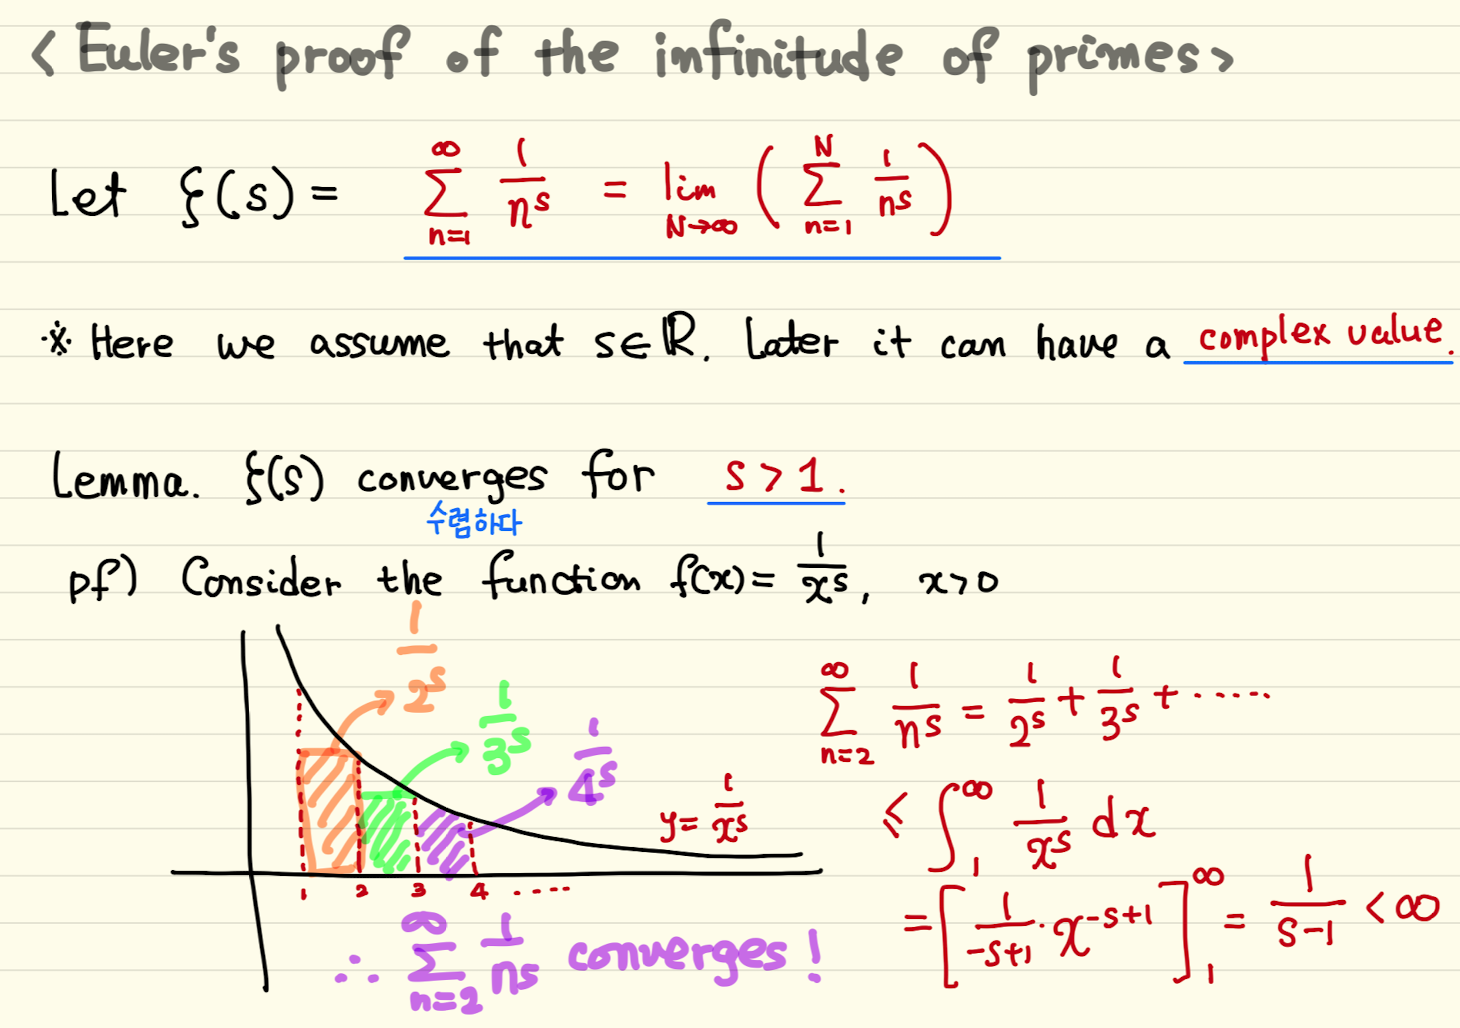 < Euler's proof of the infinitude of primes>
Let ξ(s) = ∑_{n=1}^{∞} 1/n^s = lim_{N→∞} ( ∑_{n=1}^{N} 1/n^s )
※ Here we assume that s∈ℝ. Later it can have a complex value.
Lemma. ξ(s) converges for s > 1.
수렴하다
pf) Consider the function f(x) = 1/x^s, x>0
1/2^s
1/3^s
1/4^s
y = 1/x^s
1 2 3 4 ·····
∑_{n=2}^{∞} 1/n^s = 1/2^s + 1/3^s + ·····
≤ ∫_1^∞ 1/x^s dx
= [ 1/(-s+1) · x^{-s+1} ]_1^∞ = 1/(s-1) < ∞
∴ ∑_{n=2}^{∞} 1/n^s converges !